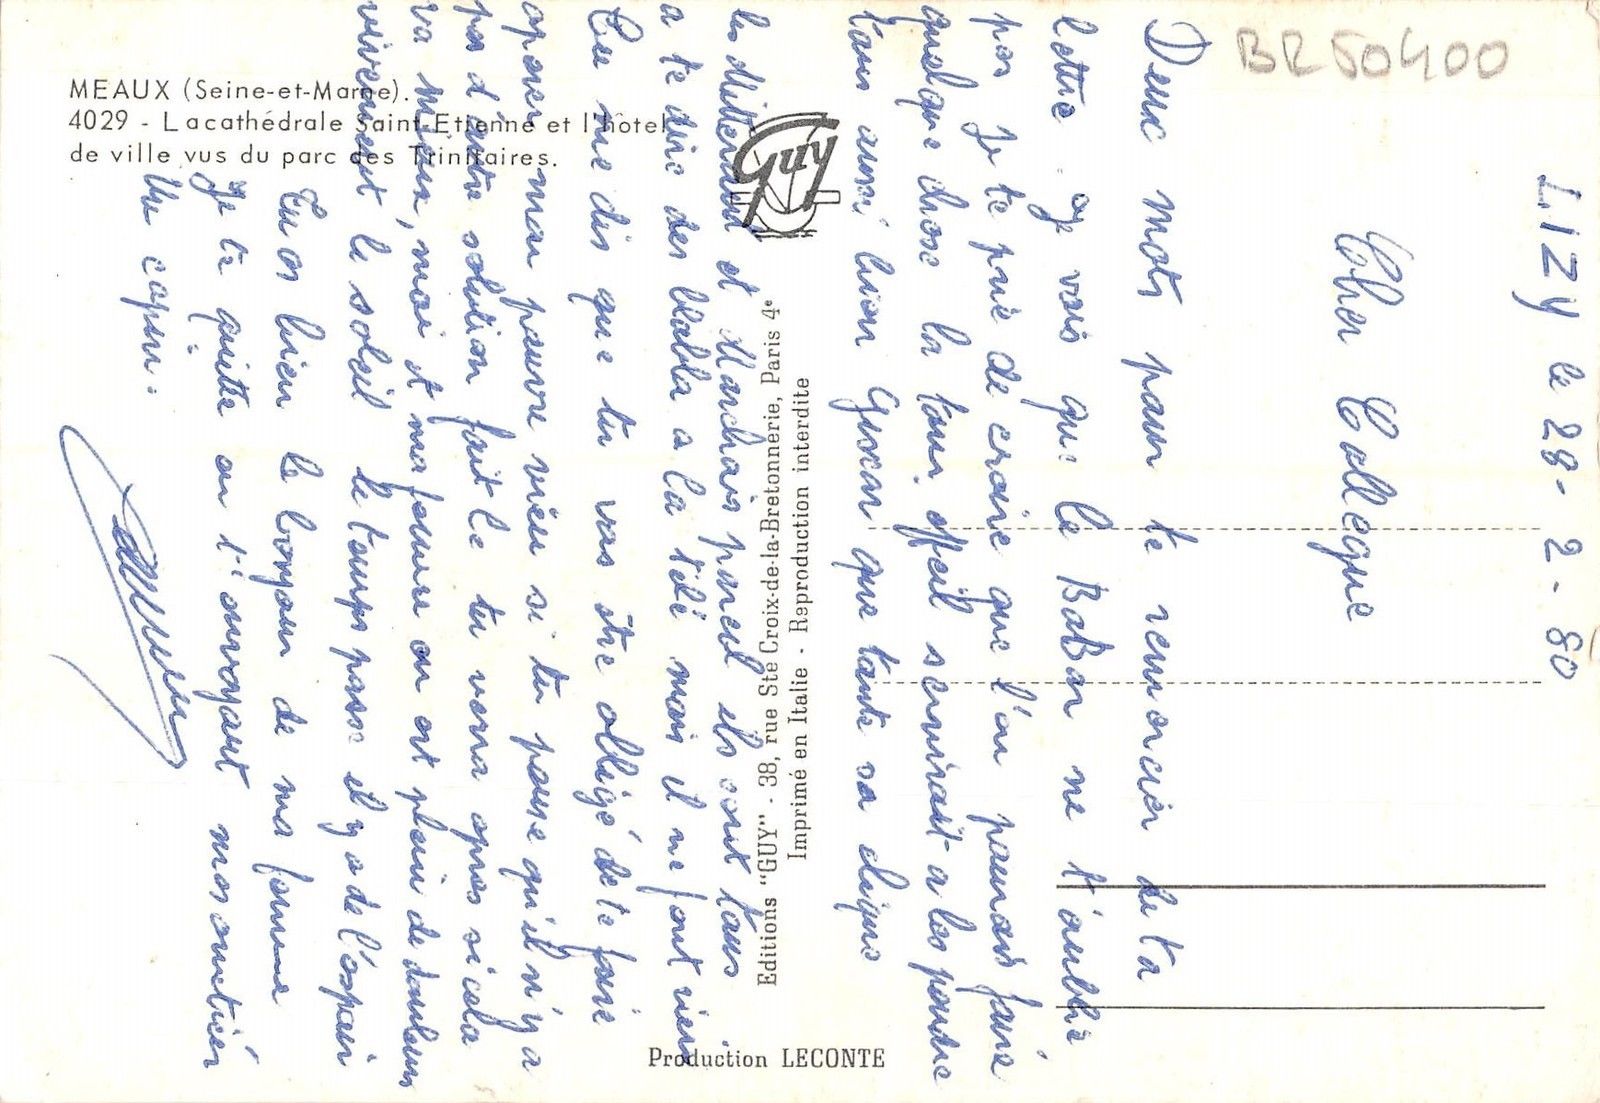 BR50400
MEAUX (Seine-et-Marne).
4029 - La cathédrale Saint-Etienne et l'hôtel
de ville vus du parc des Trinitaires.
Guy
Editions "GUY" - 38, rue Ste Croix-de-la-Bretonnerie, Paris 4e
Imprimé en Italie - Reproduction interdite
Production LECONTE
LIZY le 28-2-80
Cher Collegue
Deux mots pour te remercier de ta
lettre je vois que le BaBar ne t'oublie
pas Je te prie de croire que l'on pourrait faire
quelque chose la tour offeil servirait a les pendre
tous aussi bien que tante sa clique
les et Marchais pareil ils sont tous
a te dire des blabla a la télé mais il ne font rien
Tu me dis que tu vas être obligé de te faire
operer mon pauvre vieu si tu pense qu'il n'y a
pas d'autre solution fait le tu verra apres si cela
va mieux, moi et ma femme on est plein de douleurs
vivement le soleil le temps passe il y a de l'espoir
Tu as bien le bonjour de ma femme
Je te quitte en t'envoyant mes amitiés
Un copin.